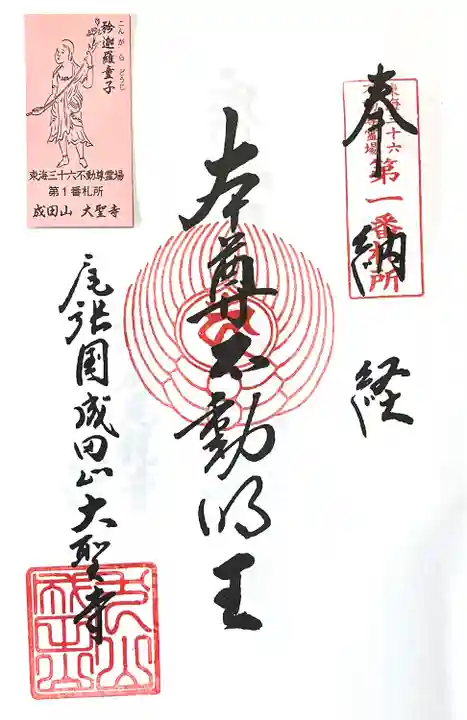 奉納経
東海三十六
霊場
第一番札所
本尊不動明王
尾張国成田山大聖寺
こんがらどうじ
矜迦羅童子
東海三十六不動尊霊場
第1番札所
成田山 大聖寺